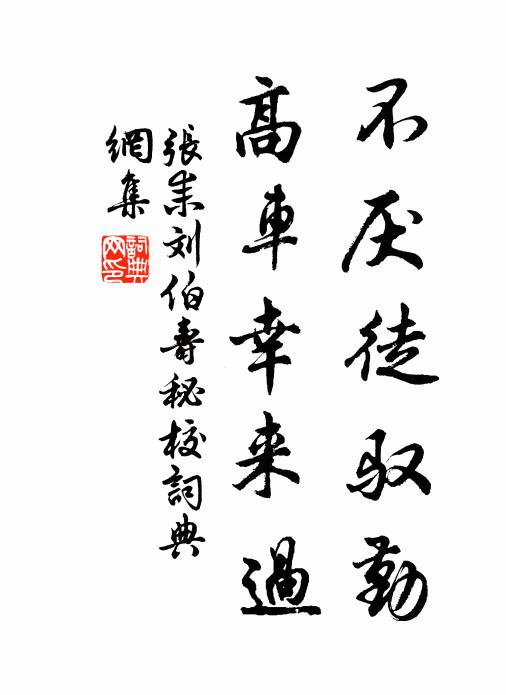 不厌徒驭勤
髙車幸来過
張耒刘伯壽秘校詞典
網集
詞典网印